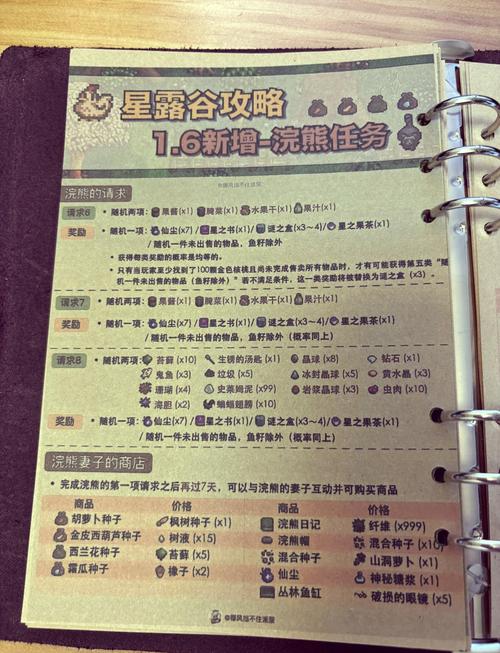 星露谷攻略
1.6新增-浣熊任务
@馨风挡不住派蒙
浣熊的请求
请求6 • 随机两项：果酱(x1) 腌菜(x1) 水果干(x1) 果汁(x1)
奖励 • 随机一项：仙尘(x7) / 星之书(x1) / 谜之盒(x3~4) / 星之果茶(x1)
/ 随机一件未出售的物品，鱼籽除外
• 获得每类奖励的概率是均等的。
• 只有当玩家至少找到了100颗金色核桃且尚未完成售卖所有物品时，才有可能获得第五类“随
机一件未出售的物品（鱼籽除外）”若不满足条件，这一类奖励将被替换为谜之盒（x3）。
请求7 • 随机两项：果酱(x1) 腌菜(x1) 水果干(x1) 果汁(x1)
奖励 • 随机一项：仙尘(x7) / 星之书(x1) / 谜之盒(x3~4) / 星之果茶(x1)
/ 随机一件未出售的物品，鱼籽除外（概率同上）
请求8 • 随机两项： 苔藓 (x10) 生锈的汤匙 (x1) 晶球 (x8) 钻石 (x1)
鬼鱼 (x3) 垃圾 (x5) 冰封晶球 (x5) 黄水晶 (x3)
珊瑚 (x4) 史莱姆泥 (x99) 岩浆晶球 (x3) 虫肉 (x10)
海胆 (x2) 蝙蝠翅膀 (x10)
奖励 • 随机一项：仙尘(x7) / 星之书(x1) / 谜之盒(x3~4) / 星之果茶(x1)
/ 随机一件未出售的物品，鱼籽除外（概率同上）
浣熊妻子的商店
• 完成浣熊的第一项请求之后再过7天，可以与浣熊的妻子互动并可购买商品
商品 价格 商品 价格
胡萝卜种子 枫树种子 (x1) 浣熊日记 纤维 (x999)
金皮西葫芦种子 树液 (x15) 浣熊帽 混合种子 (x10)
西兰花种子 苔藓 (x5) 混合种子 山洞萝卜 (x1)
霜瓜种子 橡子 (x2) 仙尘 神秘糖浆 (x1)
丛林鱼缸 破损的眼镜 (x5)